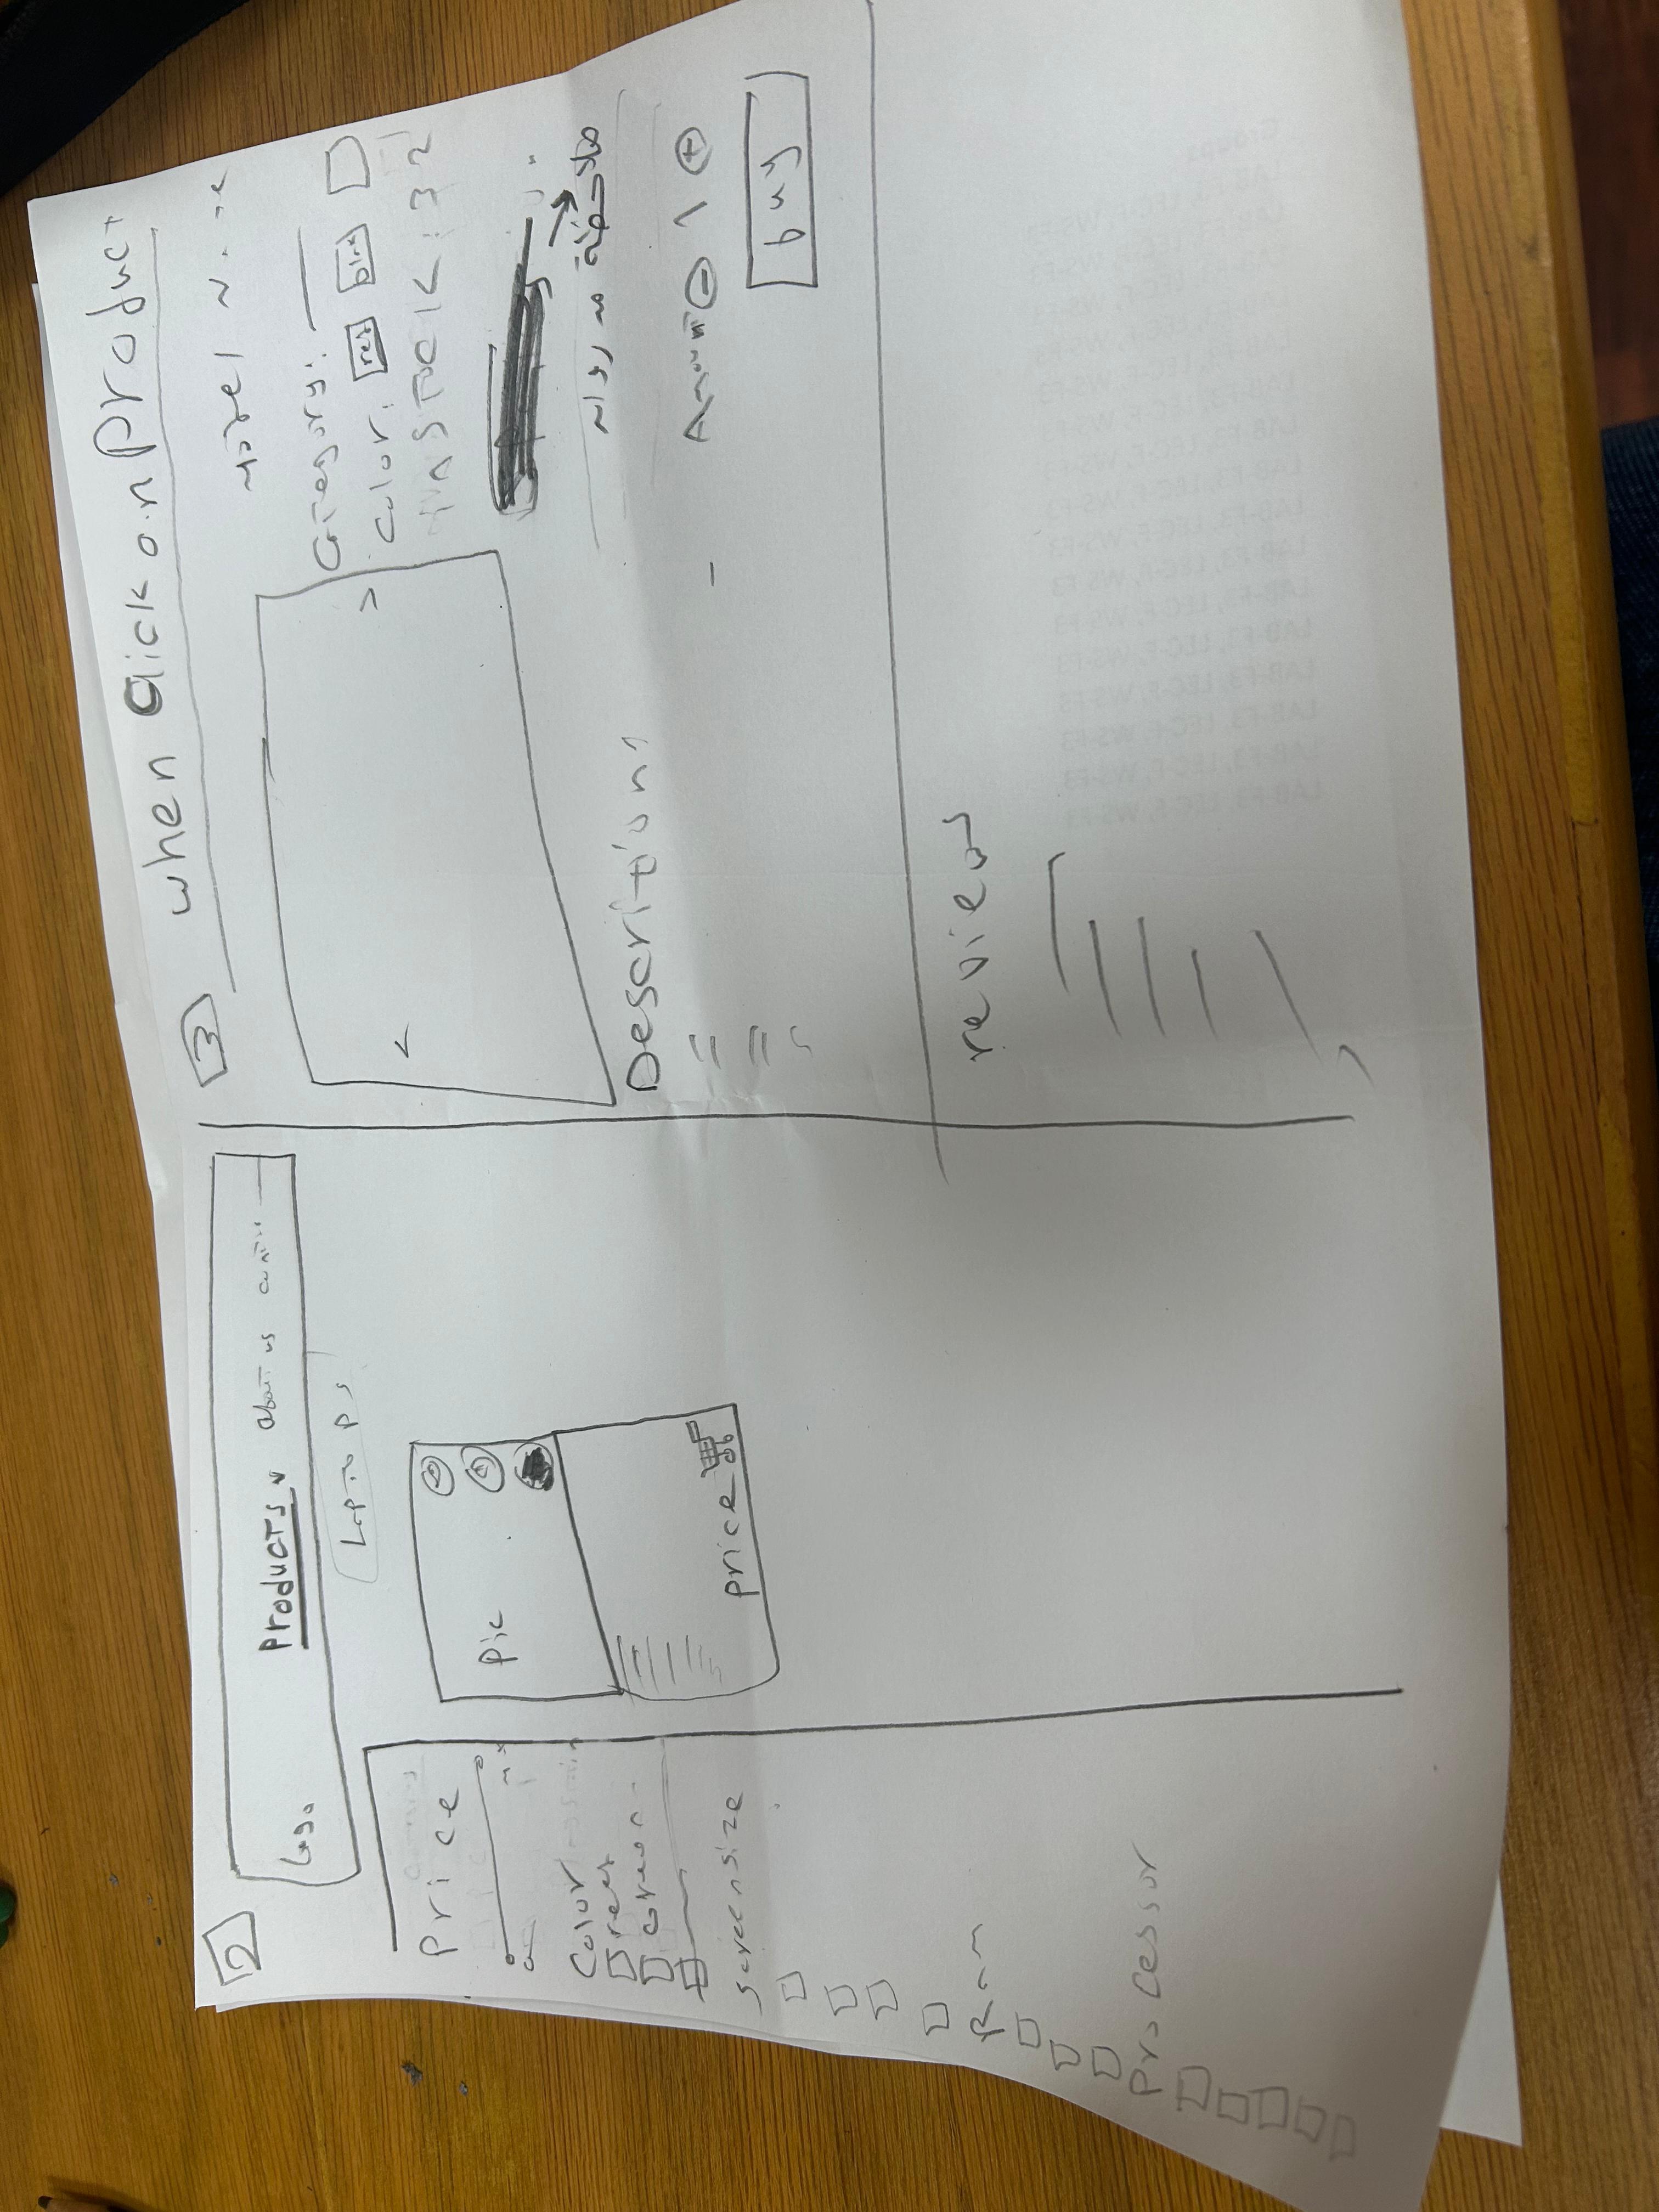 2
Logo Products about us
Laptops
Price
Color
red
Green
screen size
Ram
Processor
pic
price
3 when Click on Product
Model
Category:
Color: red black
IN STOCK: 32
< >
ملاحظة
Descrition
Amount - 1 +
buy
reviews